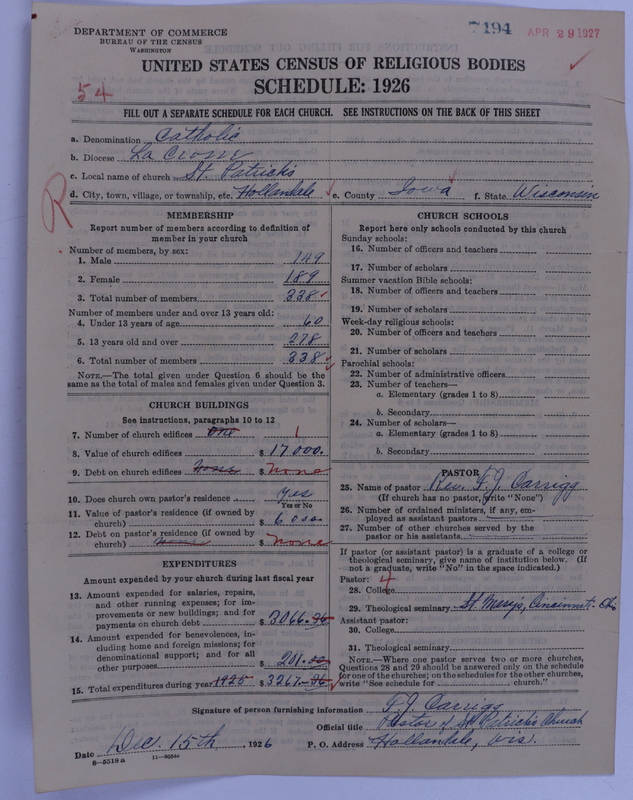 7194
APR 29 1927
DEPARTMENT OF COMMERCE
BUREAU OF THE CENSUS
WASHINGTON
UNITED STATES CENSUS OF RELIGIOUS BODIES
SCHEDULE: 1926
54
FILL OUT A SEPARATE SCHEDULE FOR EACH CHURCH. SEE INSTRUCTIONS ON THE BACK OF THIS SHEET
a. Denomination Catholic
b. Diocese La Crosse
c. Local name of church St. Patrick's
d. City, town, village, or township, etc. Hollandale e. County Iowa f. State Wisconsin
R
MEMBERSHIP
Report number of members according to definition of
member in your church
Number of members, by sex:
1. Male 149
2. Female 189
3. Total number of members 338
Number of members under and over 13 years old:
4. Under 13 years of age 60
5. 13 years old and over 278
6. Total number of members 338
NOTE.—The total given under Question 6 should be the
same as the total of males and females given under Question 3.
CHURCH BUILDINGS
See instructions, paragraphs 10 to 12
7. Number of church edifices one 1
8. Value of church edifices $ 17000.
9. Debt on church edifices None $ none
10. Does church own pastor's residence Yes
Yes or No
11. Value of pastor's residence (if owned by
church) $ 6000
12. Debt on pastor's residence (if owned by
church) None $ none
EXPENDITURES
Amount expended by your church during last fiscal year
13. Amount expended for salaries, repairs,
and other running expenses; for im-
provements or new buildings; and for
payments on church debt $ 3066.36
14. Amount expended for benevolences, in-
cluding home and foreign missions; for
denominational support; and for all
other purposes $ 201.00
15. Total expenditures during year 1925 $ 3267.36
CHURCH SCHOOLS
Report here only schools conducted by this church
Sunday schools:
16. Number of officers and teachers
17. Number of scholars
Summer vacation Bible schools:
18. Number of officers and teachers
19. Number of scholars
Week-day religious schools:
20. Number of officers and teachers
21. Number of scholars
Parochial schools:
22. Number of administrative officers
23. Number of teachers—
a. Elementary (grades 1 to 8)
b. Secondary
24. Number of scholars—
a. Elementary (grades 1 to 8)
b. Secondary
PASTOR
25. Name of pastor Rev. F. J. Carrigg
(If church has no pastor, write "None")
26. Number of ordained ministers, if any, em-
ployed as assistant pastors
27. Number of other churches served by the
pastor or his assistants
If pastor (or assistant pastor) is a graduate of a college or
theological seminary, give name of institution below. (If
not a graduate, write "No" in the space indicated.)
Pastor: 4
28. College
29. Theological seminary St. Mary's, Cincinnati Ohio
Assistant pastor:
30. College
31. Theological seminary
NOTE.—Where one pastor serves two or more churches,
Questions 28 and 29 should be answered only on the schedule
for one of the churches; on the schedules for the other churches,
write "See schedule for church."
Signature of person furnishing information F. J. Carrigg
Official title Pastor of St. Patrick's Church
Date Dec. 15th, 1926 P. O. Address Hollandale, Wis.
8—5518 a 11—9054a